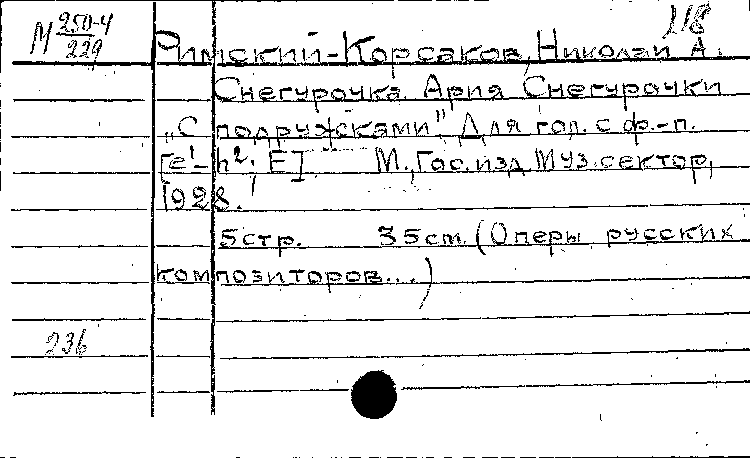 218
М 250-4/229
Римский-Корсаков, Николай А.
Снегурочка. Ария Снегурочки
„С подружками" Для гол. с ф.-п.
[e¹-h². E] М., Гос. изд. Муз. сектор,
1928.
5 стр. 35 cm. (Оперы русских
композиторов...)
236